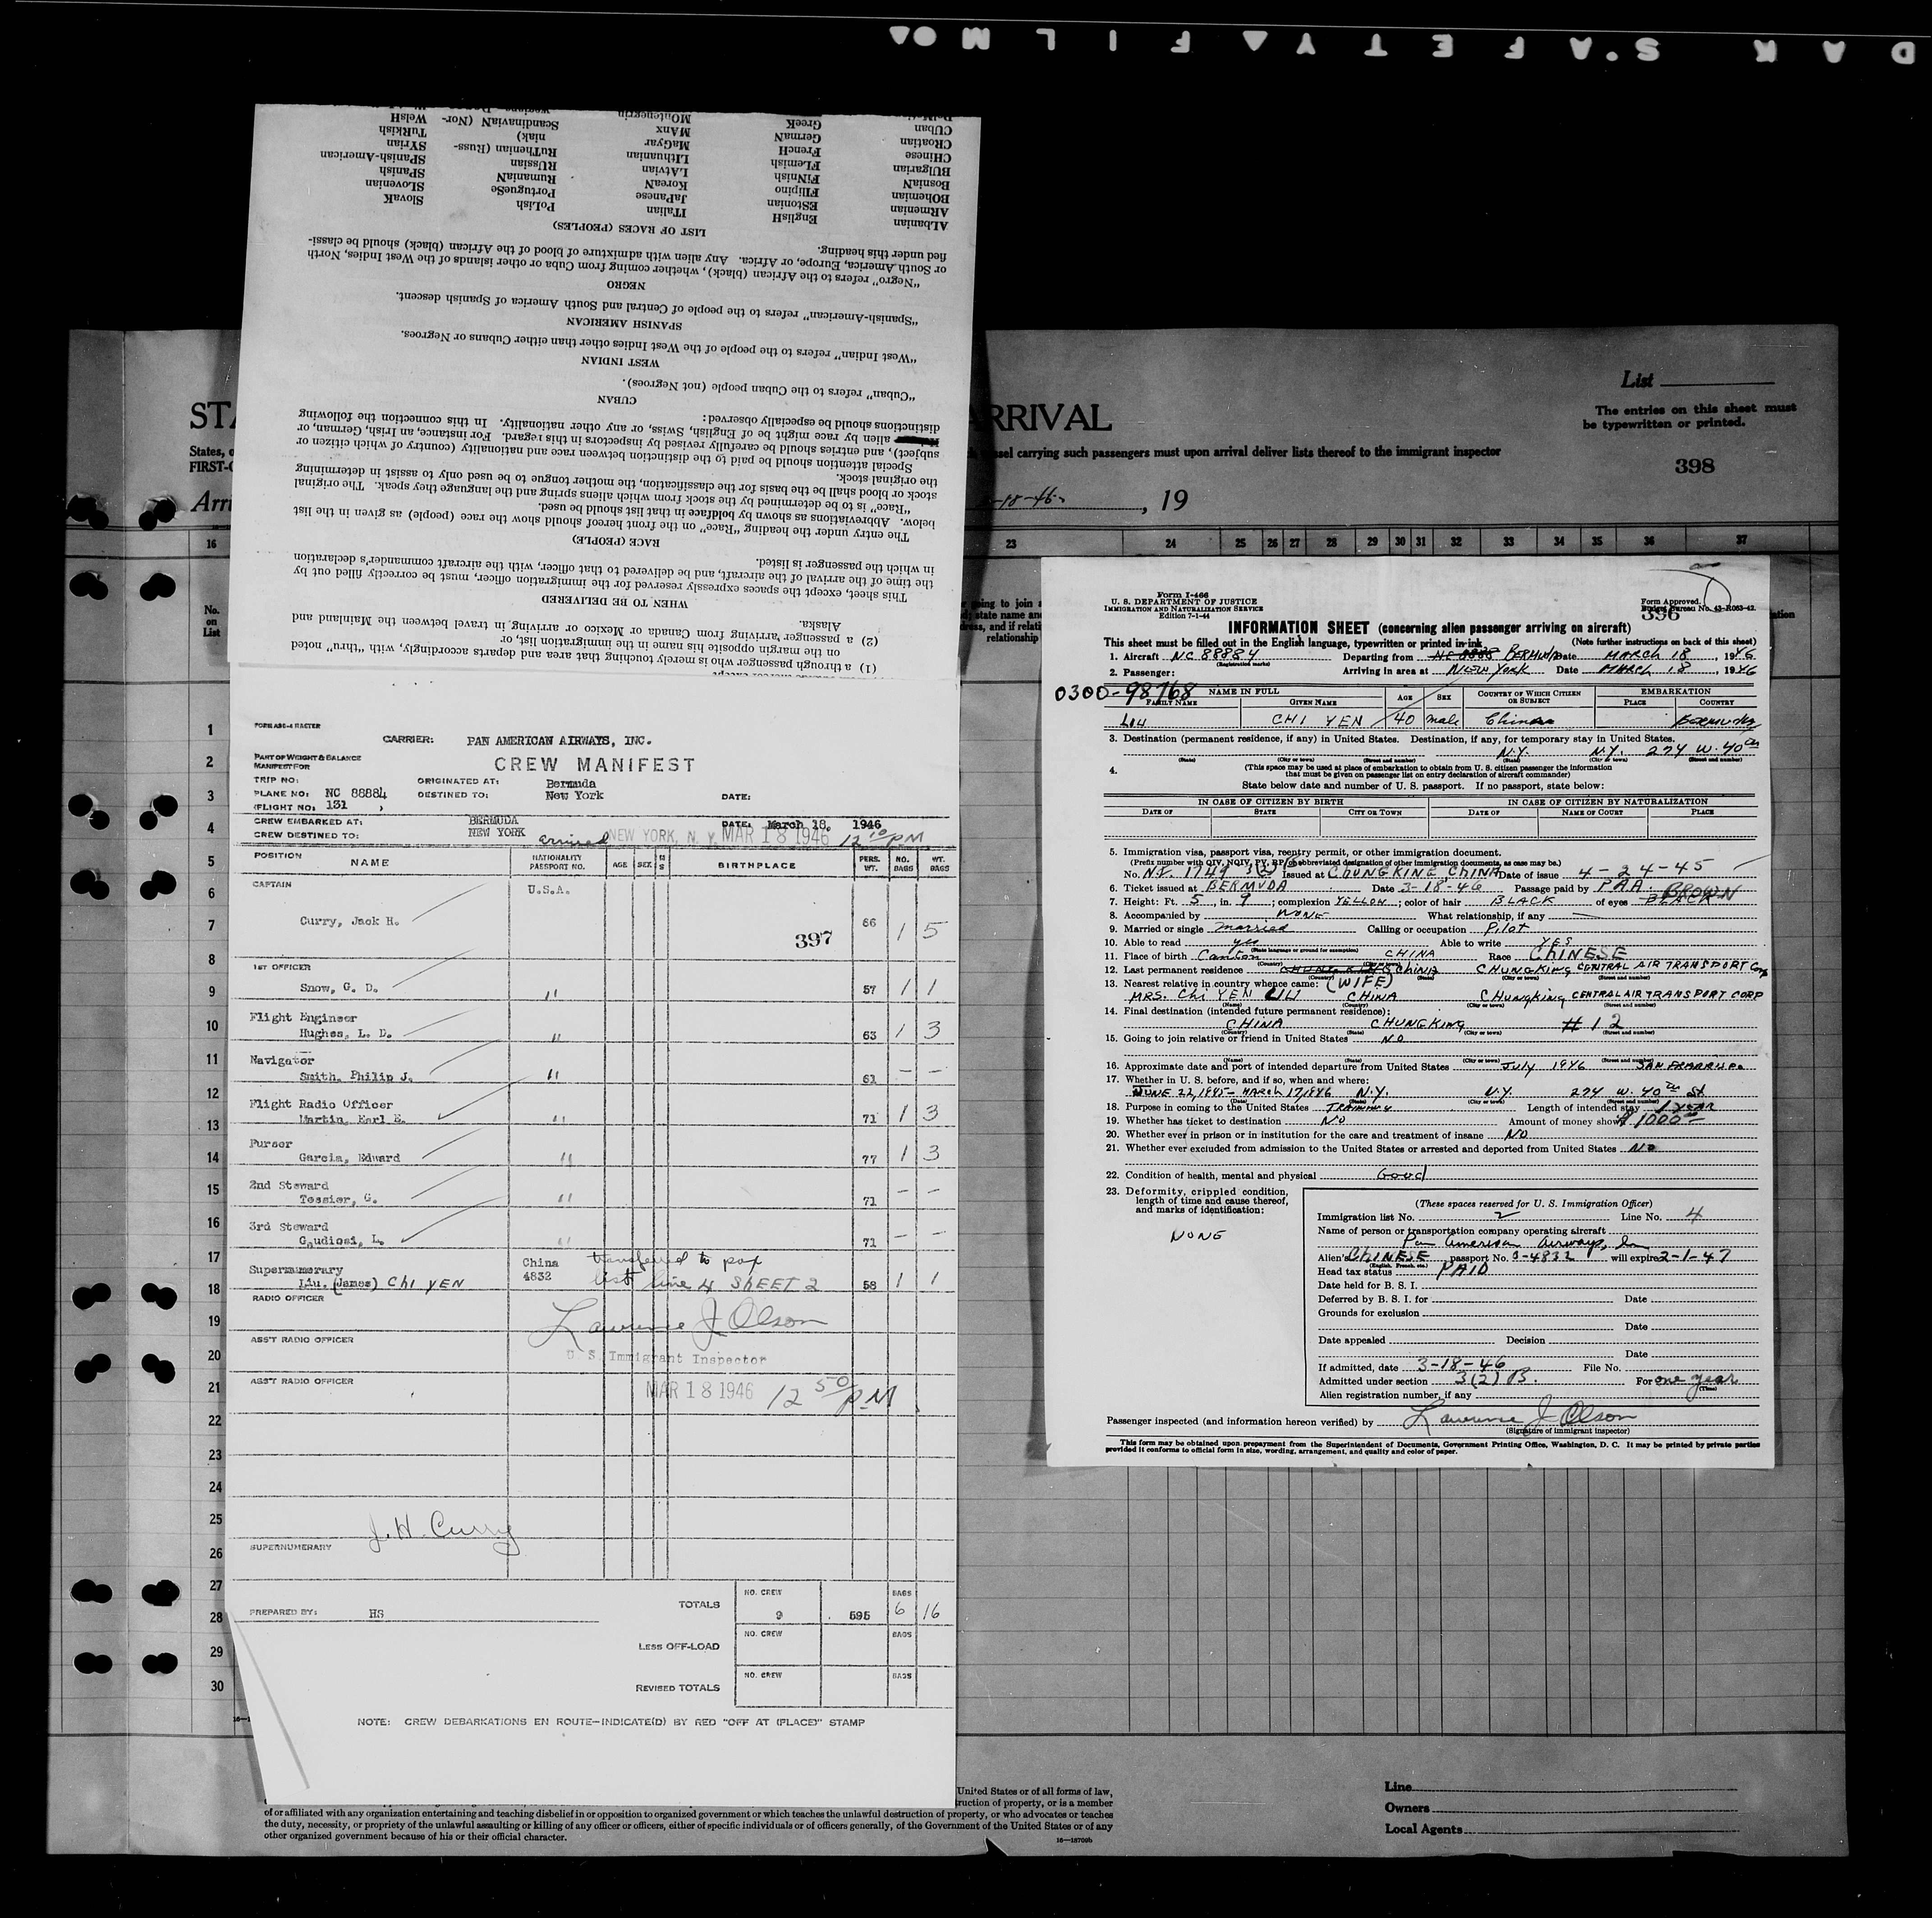 DAK S'AFETY FILM
Welsh
Turkish
Syrian
Spanish-American
Spanish
Slovenian
Slovak
Scandinavian (Nor-
niak)
Ruthenian (Russ-
Russian
Rumanian
Portuguese
Polish
Montenegrin
Manx
Magyar
Lithuanian
Latvian
Korean
Japanese
Italian
Greek
German
French
Flemish
Finnish
Filipino
Estonian
English
Cuban
Croatian
Chinese
Bulgarian
Bosnian
Bohemian
Armenian
Albanian
LIST OF RACES (PEOPLES)
fied under this heading.
or South America, Europe, or Africa. Any alien with admixture of blood of the African (black) should be classi-
"Negro" refers to the African (black), whether coming from Cuba or other islands of the West Indies, North
NEGRO
"Spanish-American" refers to the people of Central and South America of Spanish descent.
SPANISH AMERICAN
"West Indian" refers to the people of the West Indies other than either Cubans or Negroes.
WEST INDIAN
"Cuban" refers to the Cuban people (not Negroes).
CUBAN
distinctions should be especially observed:
alien by race might be of English, Swiss, or any other nationality. In this connection the following
subject), and entries should be carefully revised by inspectors in this regard. For instance, an Irish, German, or
Special attention should be paid to the distinction between race and nationality (country of which citizen or
the original stock.
stock or blood shall be the basis for the classification, the mother tongue to be used only to assist in determining
"Race" is to be determined by the stock from which aliens spring and the language they speak. The original
below. Abbreviations as shown by boldface in that list should be used.
The entry under the heading "Race" on the front hereof should show the race (people) as given in the list
RACE (PEOPLE)
in which the passenger is listed.
the time of the arrival of the aircraft, and be delivered to that officer, with the aircraft commander's declaration
This sheet, except the spaces expressly reserved for the immigration officer, must be correctly filled out by
WHEN TO BE DELIVERED
Alaska.
(2) a passenger arriving from Canada or Mexico or arriving in travel between the Mainland and
on the margin opposite his name in the immigration list, or
(1) a through passenger who is merely touching that area and departs accordingly, with "thru" noted
STA
States, o
FIRST-C
Arri
RRIVAL
sel carrying such passengers must upon arrival deliver lists thereof to the immigrant inspector
-18-46, 19
List
The entries on this sheet must
be typewritten or printed.
398
16 23 24 25 26 27 28 29 30 31 32 33 34 35 36 37
No.
on
List
going to join
relationship
1 2 3 4 5 6 7 8 9 10 11 12 13 14 15 16 17 18 19 20 21 22 23 24 25 26 27 28 29 30
CARRIER: PAN AMERICAN AIRWAYS, INC.
PART OF WEIGHT & BALANCE
MANIFEST FOR
CREW MANIFEST
TRIP NO: ORIGINATED AT: Bermuda
PLANE NO: NC 88884 DESTINED TO: New York DATE:
(FLIGHT NO: 131 )
CREW EMBARKED AT: BERMUDA DATE: March 18, 1946
CREW DESTINED TO: NEW YORK arrived NEW YORK, N. Y. MAR 18 1946 12 10/PM
POSITION NAME NATIONALITY PASSPORT NO. AGE SEX M S BIRTHPLACE PERS. WT. NO. BAGS WT. BAGS
CAPTAIN U.S.A.
Curry, Jack H. 66 1 5
397
1ST OFFICER
Snow, G. D. " 57 1 1
Flight Engineer
Hughes, L. D. " 63 1 3
Navigator
Smith, Philip J. " 61 - -
Flight Radio Officer
Martin, Earl E. " 71 1 3
Purser
Garcia, Edward " 77 1 3
2nd Steward
Tessier, G. " 71 - -
3rd Steward
Gaudiosi, L. " 71 -
Supernumerary China transferred to pax
Liu, (James) CHI YEN 4832 list line 4 SHEET 2 58 1 1
RADIO OFFICER
Lawrence J Olson
ASS'T RADIO OFFICER
U. S. Immigrant Inspector
ASS'T RADIO OFFICER
MAR 18 1946 12 50/PM
J. H. Curry
SUPERNUMERARY
TOTALS NO. CREW 9 595 BAGS 6 16
PREPARED BY: HS
LESS OFF-LOAD NO. CREW BAGS
REVISED TOTALS NO. CREW BAGS
NOTE: CREW DEBARKATIONS EN ROUTE—INDICATE(D) BY RED "OFF AT (PLACE)" STAMP
Form I-466
U. S. DEPARTMENT OF JUSTICE
IMMIGRATION AND NATURALIZATION SERVICE
Edition 7-1-44
Form Approved.
Budget Bureau No. 43-R063-42.
396
INFORMATION SHEET (concerning alien passenger arriving on aircraft)
This sheet must be filled out in the English language, typewritten or printed in ink (Note further instructions on back of this sheet)
1. Aircraft NC 88884 Departing from BERMUDA Date MARCH 18, 1946
(Registration marks)
2. Passenger: Arriving in area at NEW YORK Date MARCH 18, 1946
0300-98768
NAME IN FULL AGE SEX COUNTRY OF WHICH CITIZEN OR SUBJECT EMBARKATION
FAMILY NAME GIVEN NAME PLACE COUNTRY
LIU CHI YEN 40 male China BERMUDA
3. Destination (permanent residence, if any) in United States. Destination, if any, for temporary stay in United States.
N.Y. N.Y. 274 W. 40th
(State) (City or town) (Street and number) (State) (City or town) (Street and number)
4. (This space may be used at place of embarkation to obtain from U. S. citizen passenger the information
that must be given on passenger list on entry declaration of aircraft commander)
State below date and number of U. S. passport. If no passport, state below:
IN CASE OF CITIZEN BY BIRTH IN CASE OF CITIZEN BY NATURALIZATION
DATE OF STATE CITY OR TOWN DATE OF NAME OF COURT PLACE
5. Immigration visa, passport visa, reentry permit, or other immigration document.
(Prefix number with QIV, NQIV, PV, RP or abbreviated designation of other immigration documents, as case may be.)
No. N.I. 1749 3(2) Issued at CHUNGKING, CHINA Date of issue 4-24-45
6. Ticket issued at BERMUDA Date 3-18-46 Passage paid by P.A.A.
7. Height: Ft. 5, in. 9; complexion YELLOW; color of hair BLACK of eyes BLACK BROWN
8. Accompanied by NONE What relationship, if any —
9. Married or single married Calling or occupation Pilot
10. Able to read yes Able to write YES
(State language or ground for exemption)
11. Place of birth Canton CHINA Race CHINESE
(Country) (City or town)
12. Last permanent residence CHINA CHUNGKING CENTRAL AIR TRANSPORT Corp
(Country) (State) (City or town) (Street and number)
13. Nearest relative in country whence came: (WIFE)
MRS. CHI YEN LIU CHINA CHUNGKING CENTRAL AIR TRANSPORT CORP
(Name) (Country) (City or town) (Street and number)
14. Final destination (intended future permanent residence):
CHINA CHUNGKING #12
(Country) (State) (City or town) (Street and number)
15. Going to join relative or friend in United States NO
(Name) (State) (City or town) (Street and number)
16. Approximate date and port of intended departure from United States July 1946
17. Whether in U. S. before, and if so, when and where:
JUNE 22, 1945 - MARCH 17, 1946 N.Y. N.Y. 274 W. 40th St
(Date) (State) (City or town) (Street and number)
18. Purpose in coming to the United States TRAINING Length of intended stay 1 year
19. Whether has ticket to destination NO Amount of money shown $1000
20. Whether ever in prison or in institution for the care and treatment of insane NO
21. Whether ever excluded from admission to the United States or arrested and deported from United States NO
22. Condition of health, mental and physical Good
23. Deformity, crippled condition,
length of time and cause thereof,
and marks of identification:
NONE
(These spaces reserved for U. S. Immigration Officer)
Immigration list No. 2 Line No. 4
Name of person or transportation company operating aircraft
Pan American Airways, Inc
Alien's CHINESE passport No. S-4832 will expire 2-1-47
(English, French, etc.)
Head tax status PAID
Date held for B. S. I.
Deferred by B. S. I. for Date
Grounds for exclusion
Date
Date appealed Decision
Date
If admitted, date 3-18-46 File No.
Admitted under section 3(2) B. For one year
(Time)
Alien registration number, if any
Passenger inspected (and information hereon verified) by Lawrence J Olson
(Signature of immigrant inspector)
This form may be obtained upon prepayment from the Superintendent of Documents, Government Printing Office, Washington, D. C. It may be printed by private parties
provided it conforms to official form in size, wording, arrangement, and quality and color of paper.
United States or of all forms of law,
truction of property, or is a member
of or affiliated with any organization entertaining and teaching disbelief in or opposition to organized government or which teaches the unlawful destruction of property, or who advocates or teaches
the duty, necessity, or propriety of the unlawful assaulting or killing of any officer or officers, either of specific individuals or of officers generally, of the Government of the United States or of any
other organized government because of his or their official character.
16—18709b
Line
Owners
Local Agents